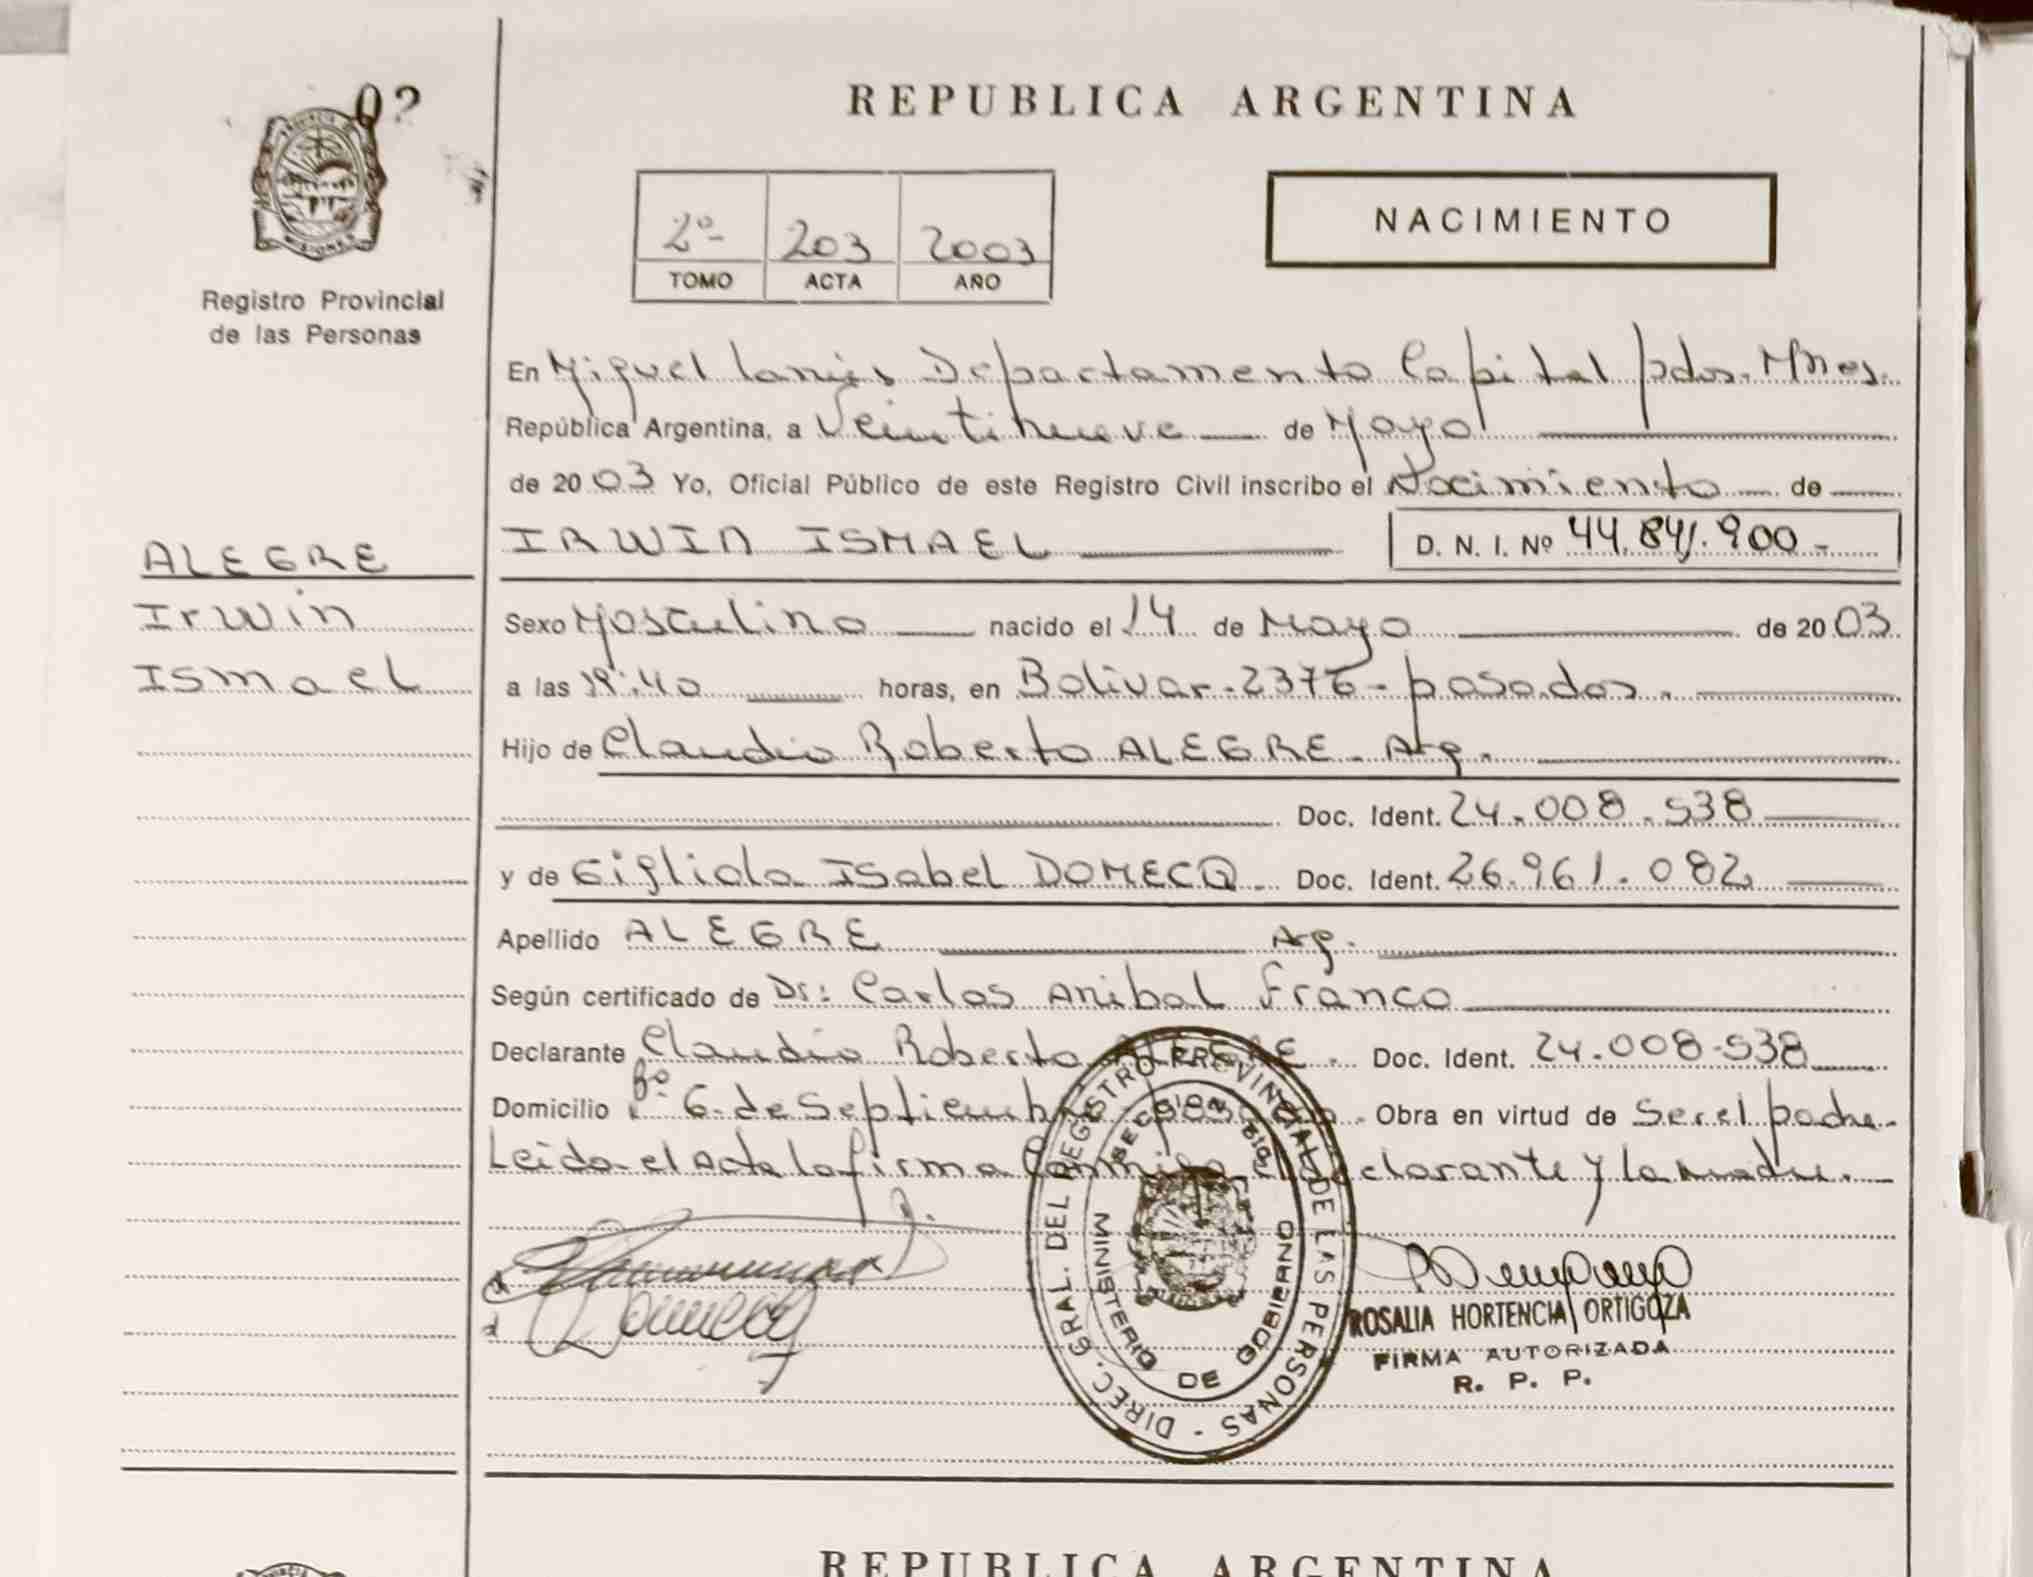 02
PROVINCIA DE
MISIONES
Registro Provincial
de las Personas
REPUBLICA ARGENTINA
2º- 203 2003
TOMO ACTA AÑO
NACIMIENTO
En Miguel Lanús Departamento Capital Pdas. Mnes.
República Argentina, a Veintinueve de Mayo
de 2003 Yo, Oficial Público de este Registro Civil inscribo el Nacimiento de
IRWIN ISMAEL D. N. I. Nº 44.841.900-
ALEGRE
Irwin
Ismael
Sexo Masculino nacido el 14 de Mayo de 2003
a las 19:40 horas, en Bolivar-2376-posadas.
Hijo de Claudio Roberto ALEGRE- Arg.
Doc. Ident. 24.008.538
y de Gigliola ISabel DOMECQ. Doc. Ident. 26.961.082
Apellido ALEGRE Arg.
Según certificado de Dr: Carlos Anibal Franco
Declarante Claudio Roberto ALEGRE. Doc. Ident. 24.008.538
Domicilio Bº 6 de Septiembre Obra en virtud de Ser el padre-
Leida el Acta la firma Conmigo el declarante y la madre.
DIREC. GRAL. DEL REGISTRO PROVINCIAL DE LAS PERSONAS -
MINISTERIO DE GOBIERNO
ROSALIA HORTENCIA ORTIGOZA
FIRMA AUTORIZADA
R. P. P.
REPUBLICA ARGENTINA